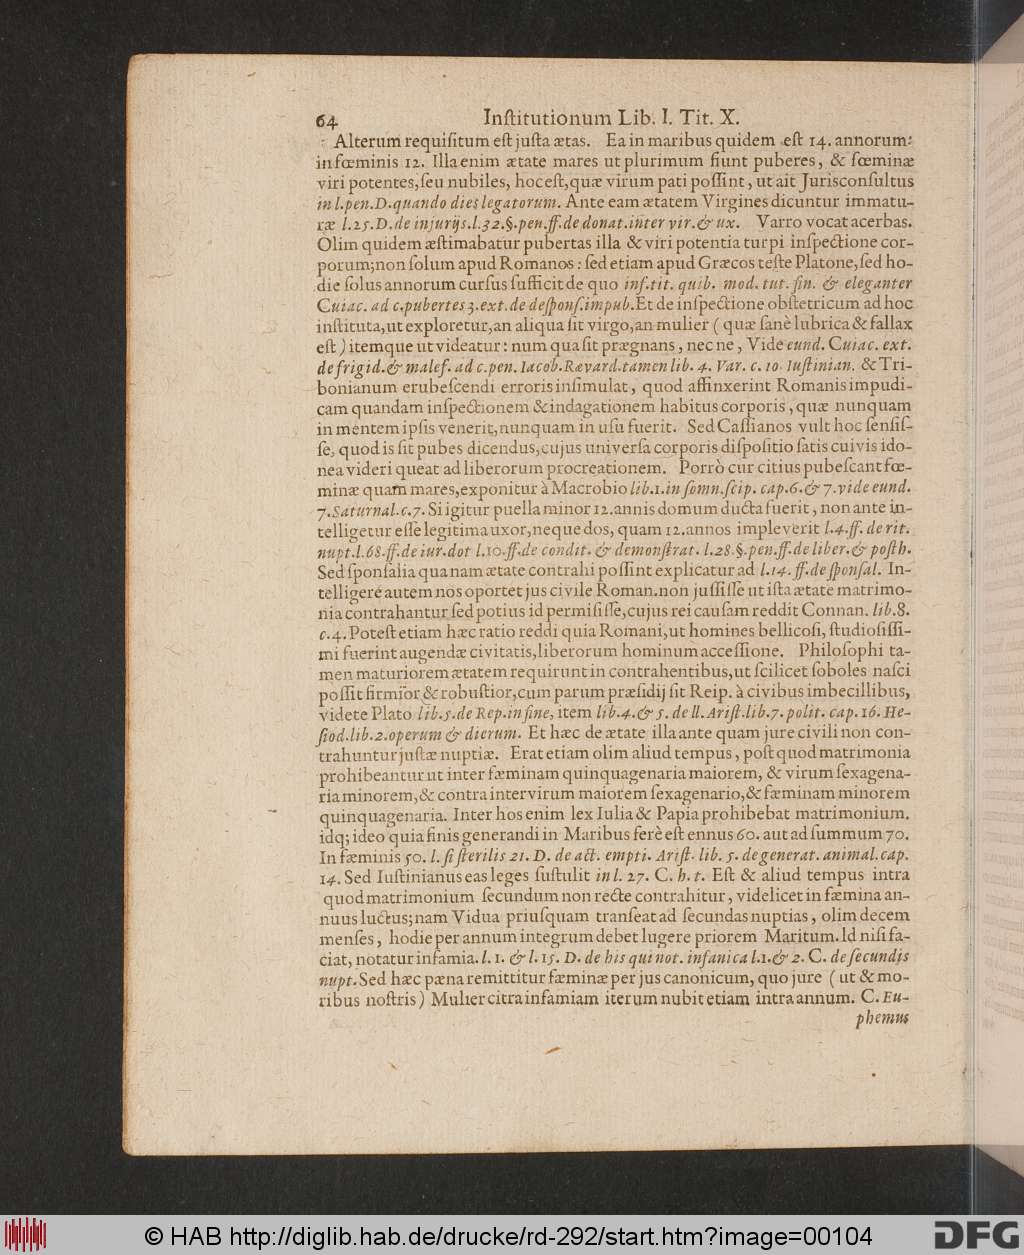 64 Inſtitutionum Lib. I. Tit. X.
Alterum requiſitum eſt juſta ætas. Ea in maribus quidem eſt 14. annorum:
in fœminis 12. Illa enim ætate mares ut plurimum fiunt puberes, & fœminæ
viri potentes, ſeu nubiles, hoc eſt, quæ virum pati poſſint, ut ait Jurisconſultus
in l. pen. D. quando dies legatorum. Ante eam ætatem Virgines dicuntur immatu-
ræ l. 25. D. de injurijs. l. 32. §. pen. ff. de donat. inter vir. & ux. Varro vocat acerbas.
Olim quidem æſtimabatur pubertas illa & viri potentia turpi inſpectione cor-
porum; non ſolum apud Romanos: ſed etiam apud Græcos teſte Platone, ſed ho-
die ſolus annorum curſus ſufficit de quo inf. tit. quib. mod. tut. fin. & eleganter
Cuiac. ad c. pubertes 3. ext. de deſponſ. impub. Et de inſpectione obſtetricum ad hoc
inſtituta, ut exploretur, an aliqua ſit virgo, an mulier (quæ ſanè lubrica & fallax
eſt) itemque ut videatur: num qua ſit prægnans, nec ne, Vide eund. Cuiac. ext.
de frigid. & malef. ad c. pen. Iacob. Rævard. tamen lib. 4. Var. c. 10. Iuſtinian. & Tri-
bonianum erubeſcendi erroris inſimulat, quod affinxerint Romanis impudi-
cam quandam inſpectionem & indagationem habitus corporis, quæ nunquam
in mentem ipſis venerit, nunquam in uſu fuerit. Sed Caſſianos vult hoc ſenſiſ-
ſe, quod is ſit pubes dicendus, cujus univerſa corporis diſpoſitio ſatis cuivis ido-
nea videri queat ad liberorum procreationem. Porrò cur citius pubeſcant fœ-
minæ quam mares, exponitur à Macrobio lib. 1. in ſomn. ſcip. cap. 6. & 7. vide eund.
7. Saturnal. c. 7. Si igitur puella minor 12. annis domum ducta fuerit, non ante in-
telligetur eſſe legitima uxor, neque dos, quam 12. annos impleverit l. 4. ff. de rit.
nupt. l. 68. ff. de iur. dot l. 10. ff. de condit. & demonſtrat. l. 28. §. pen. ff. de liber. & poſth.
Sed ſponſalia qua nam ætate contrahi poſſint explicatur ad l. 14. ff. de ſponſal. In-
telligere autem nos oportet jus civile Roman. non juſſiſſe ut iſta ætate matrimo-
nia contrahantur ſed potius id permiſiſſe, cujus rei cauſam reddit Connan. lib. 8.
c. 4. Poteſt etiam hæc ratio reddi quia Romani, ut homines bellicoſi, ſtudioſiſſi-
mi fuerint augendæ civitatis, liberorum hominum acceſſione. Philoſophi ta-
men maturiorem ætatem requirunt in contrahentibus, ut ſcilicet ſoboles naſci
poſſit firmior & robuſtior, cum parum præſidij ſit Reip. à civibus imbecillibus,
videte Plato lib. 5. de Rep. in fine, item lib. 4. & 5. de ll. Ariſt. lib. 7. polit. cap. 16. He-
ſiod. lib. 2. operum & dierum. Et hæc de ætate illa ante quam jure civili non con-
trahuntur juſtæ nuptiæ. Erat etiam olim aliud tempus, poſt quod matrimonia
prohibeantur ut inter fæminam quinquagenaria maiorem, & virum ſexagena-
ria minorem, & contra inter virum maiorem ſexagenario, & fæminam minorem
quinquagenaria. Inter hos enim lex Iulia & Papia prohibebat matrimonium.
idq; ideo quia finis generandi in Maribus ferè eſt ennus 60. aut ad ſummum 70.
In fæminis 50. l. ſi ſterilis 21. D. de act. empti. Ariſt. lib. 5. de generat. animal. cap.
14. Sed Iuſtinianus eas leges ſuſtulit in l. 27. C. h. t. Eſt & aliud tempus intra
quod matrimonium ſecundum non recte contrahitur, videlicet in fæmina an-
nuus luctus; nam Vidua priuſquam tranſeat ad ſecundas nuptias, olim decem
menſes, hodie per annum integrum debet lugere priorem Maritum. Id niſi fa-
ciat, notatur infamia. l. 1. & l. 15. D. de his qui not. infam ica l. 1. & 2. C. de ſecundis
nupt. Sed hæc pæna remittitur fæminæ per jus canonicum, quo jure (ut & mo-
ribus noſtris) Mulier citra infamiam iterum nubit etiam intra annum. C. Eu-
phemus
© HAB http://diglib.hab.de/drucke/rd-292/start.htm?image=00104
DFG